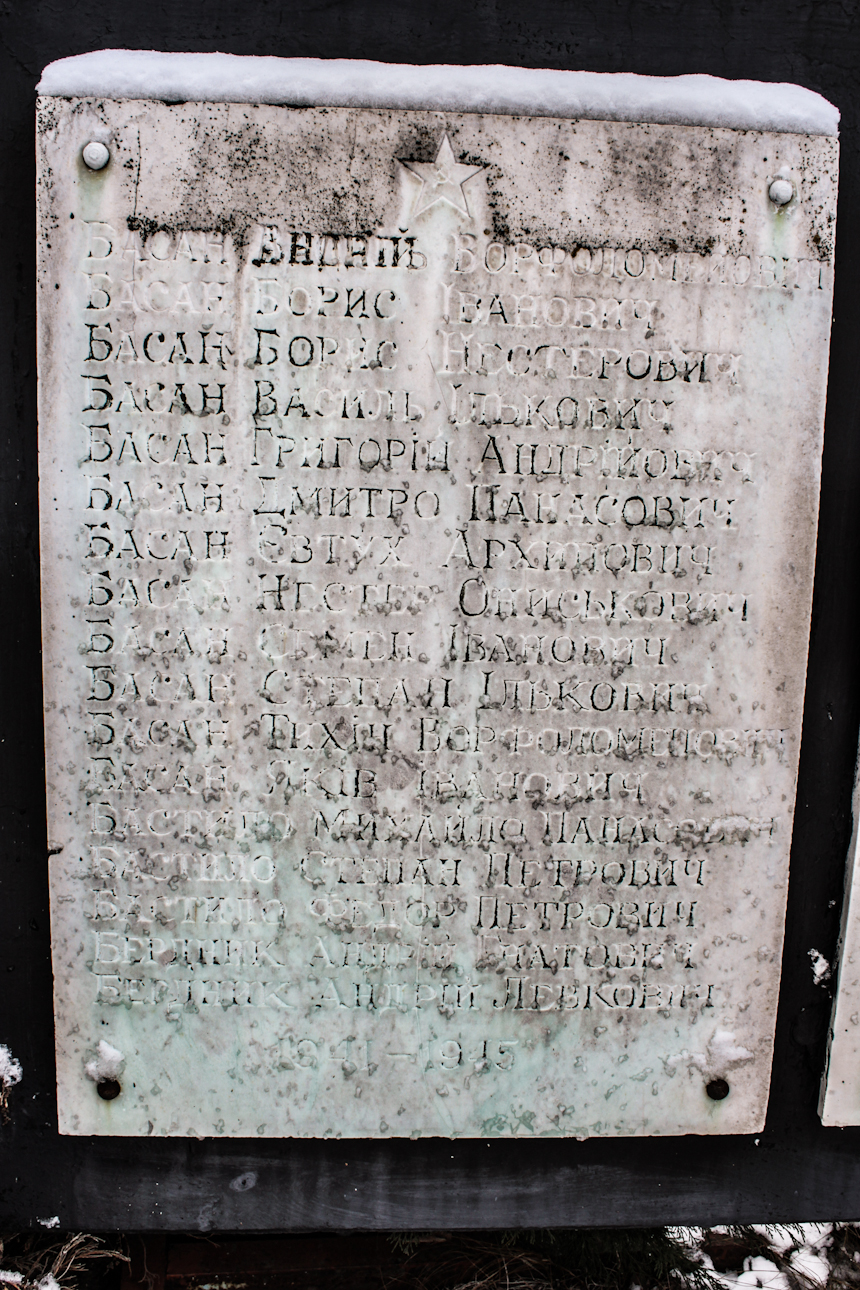 Басан Андрій Ворфоломейович
Басан Борис Іванович
Басан Борис Нестерович
Басан Василь Ількович
Басан Григорій Андрійович
Басан Дмитро Панасович
Басан Євтух Архипович
Басан Нестер Ониськович
Басан Семен Іванович
Басан Степан Ількович
Басан Тихін Ворфоломейович
Басан Яків Іванович
Бастило Михайло Панасович
Бастило Степан Петрович
Бастило Федор Петрович
Бердник Андрій Гнатович
Бердник Андрій Левкович
1941 – 1945